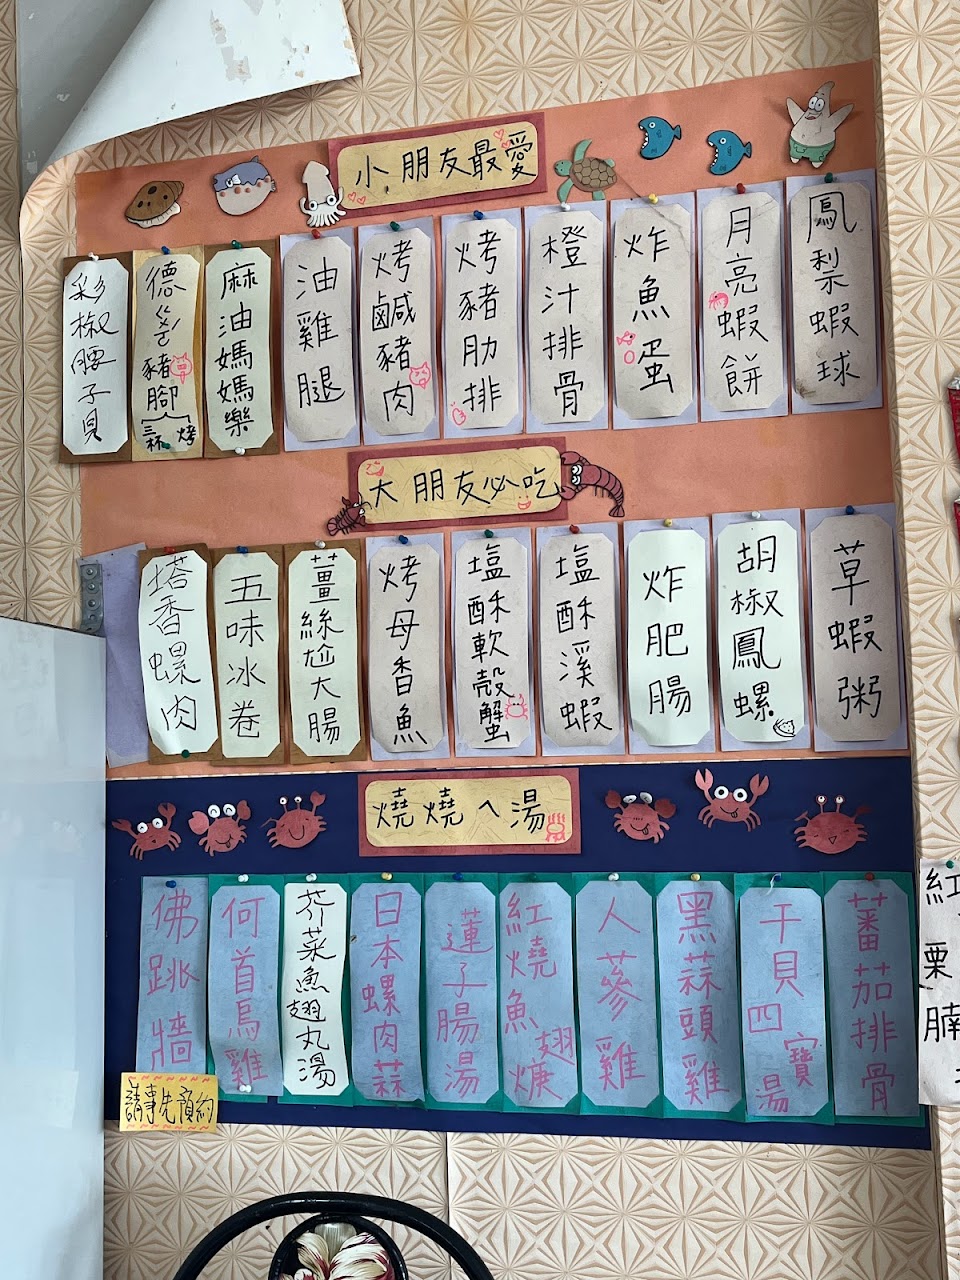 小朋友最愛
鳳梨蝦球
月亮蝦餅
炸魚蛋
橙汁排骨
烤豬肋排
烤鹹豬肉
油雞腿
麻油媽媽樂
德ㄍㄨㄛˊ豬腳(三杯 烤)
彩椒腰子貝
大朋友必吃
草蝦粥
胡椒鳳螺
炸肥腸
塩酥溪蝦
塩酥軟殼蟹
烤母香魚
薑絲尬大腸
五味冰卷
塔香螺肉
燒燒ㄟ湯
蕃茄排骨
干貝四寶湯
黑蒜頭雞
人蔘雞
紅燒魚翅焿
蓮子腸湯
日本螺肉蒜
芥菜魚翅丸湯
何首烏雞
佛跳牆
請事先預約